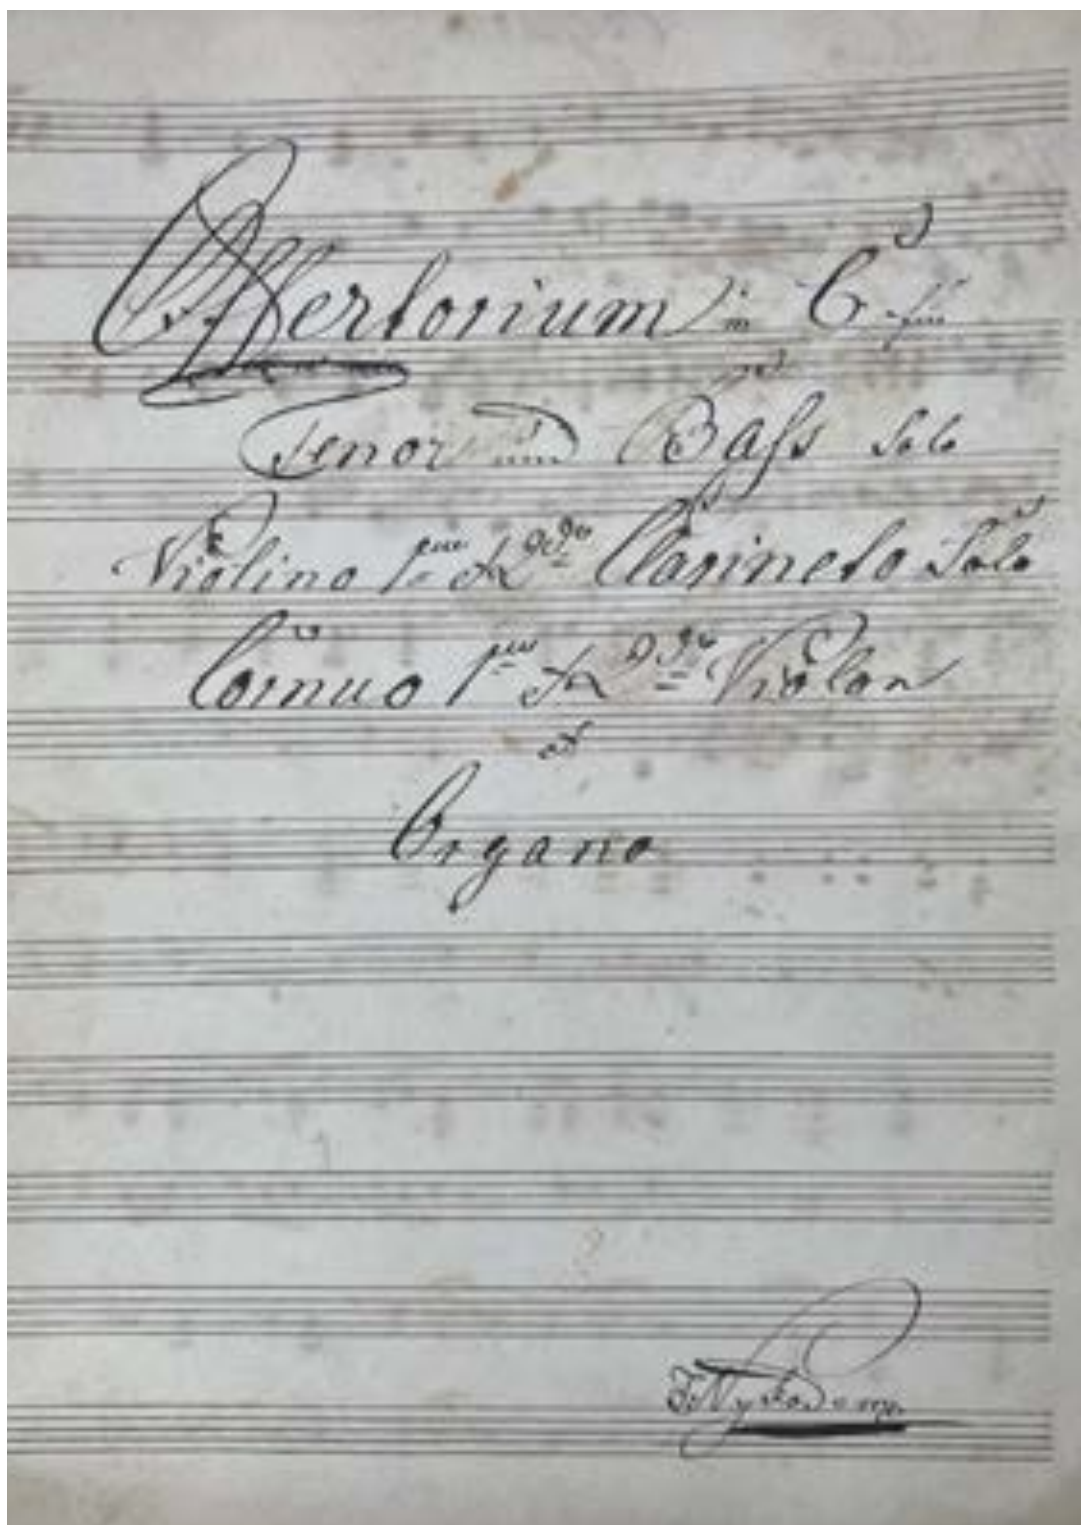 Offertorium in C
Tenor und Bass Solo
Violino 1mo et 2do Clarineto Solo
Cornuo 1mo et 2do Violon
et
Organo